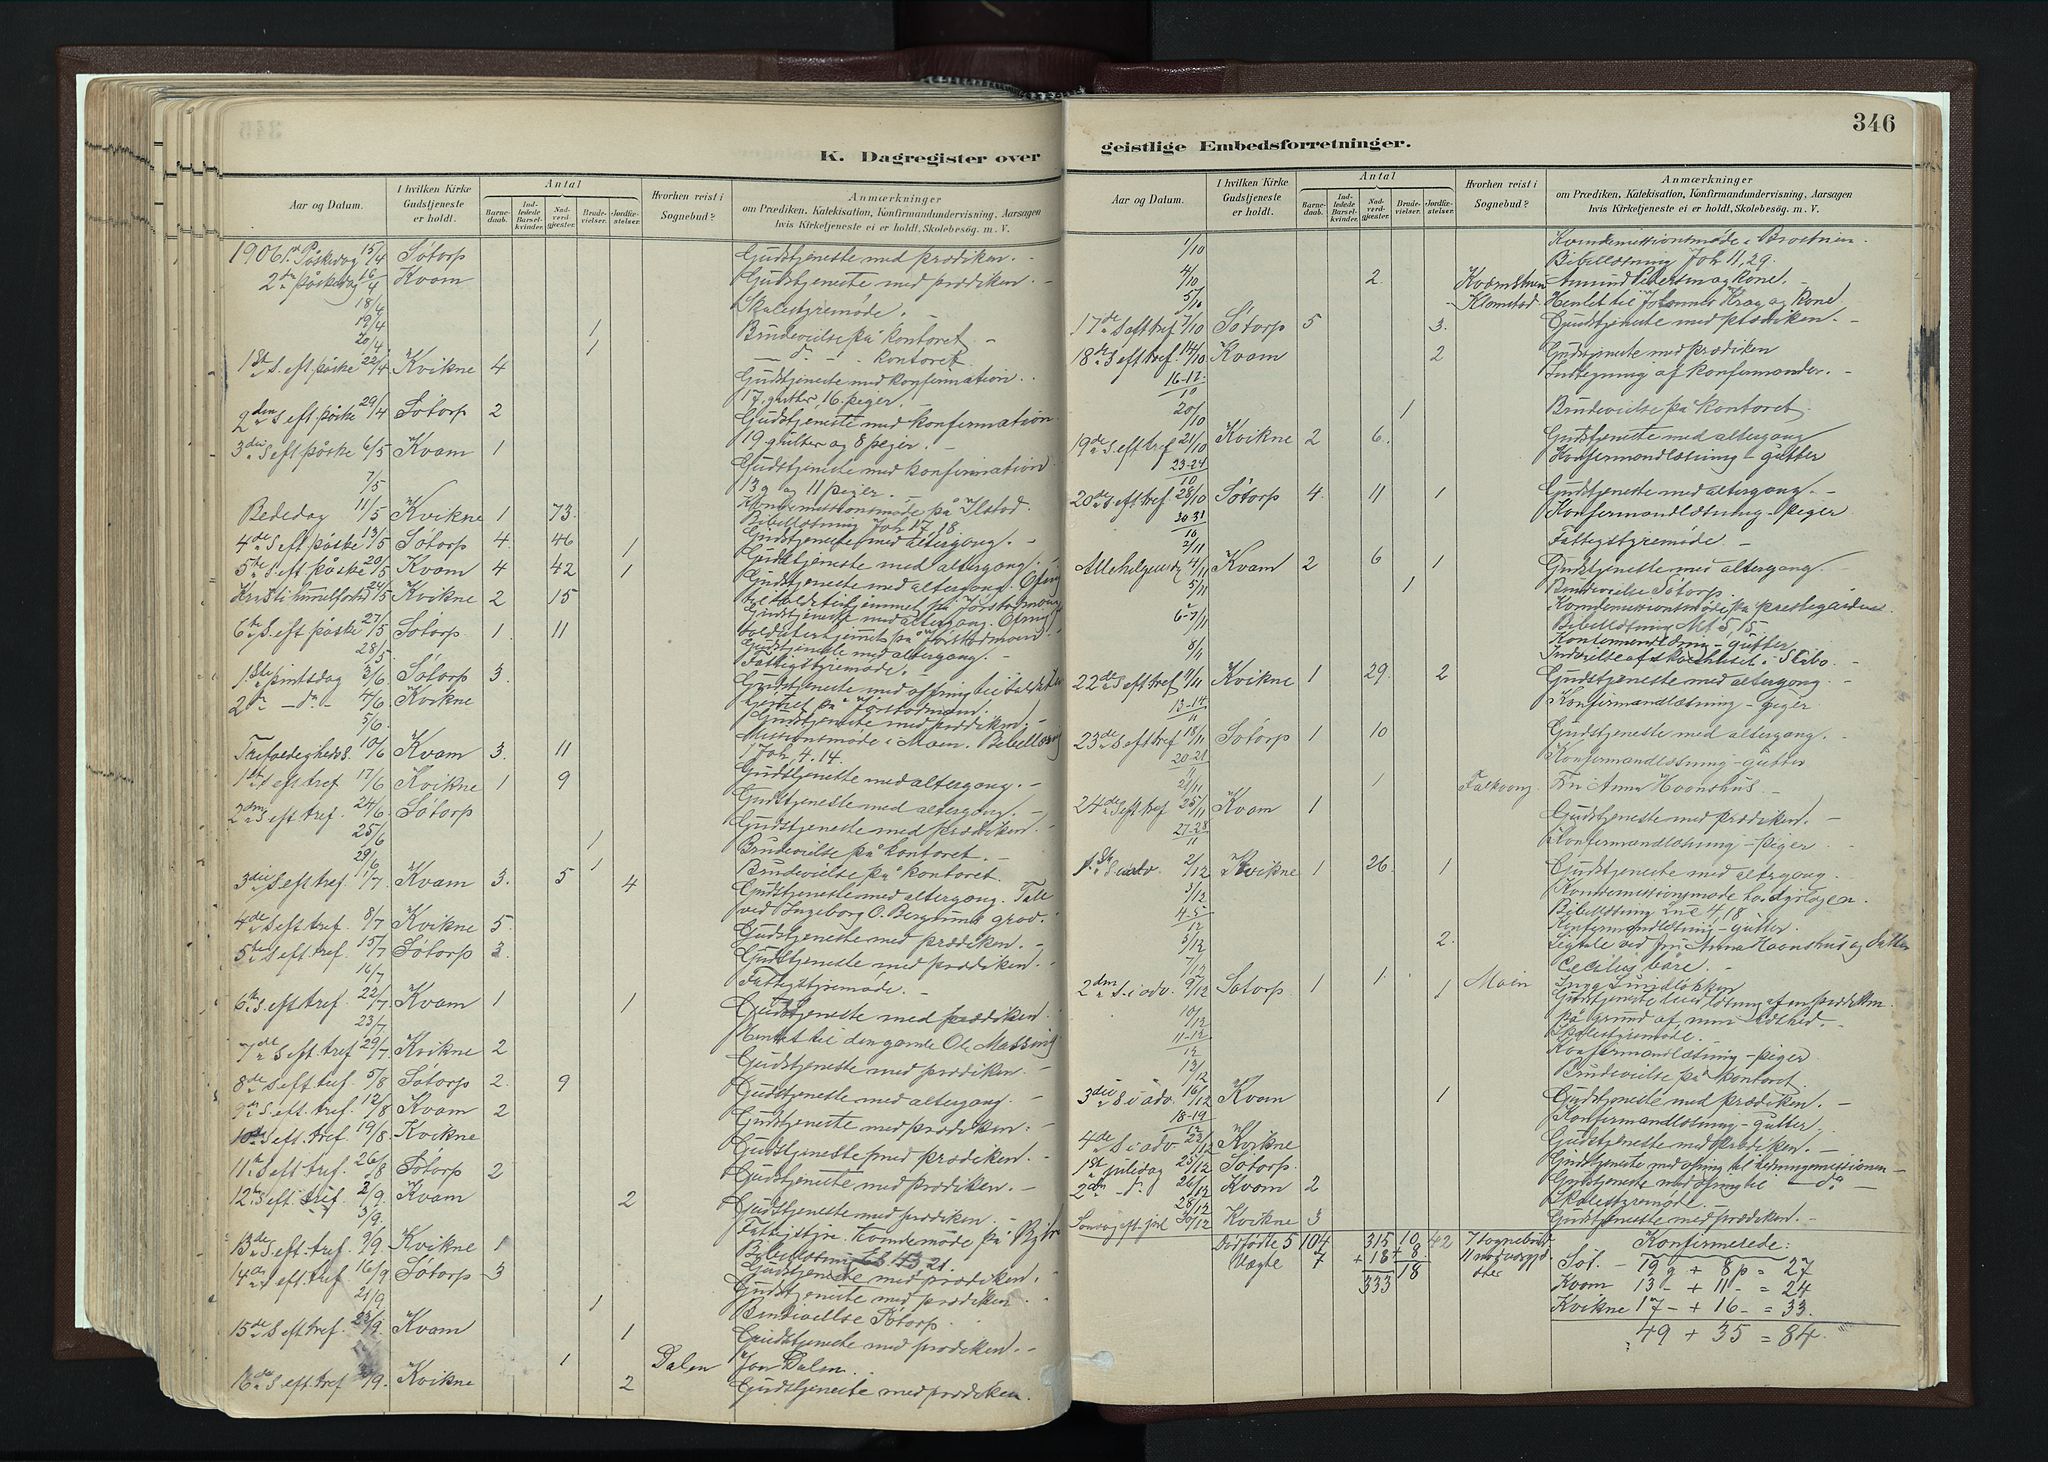 346
K. Dagregister over
geistlige Embedsforretninger.
Aar og Datum.
I hvilken Kirke Gudstjeneste er holdt.
Antal
Barne-daab.
Ind-ledede Barsel-kvinder.
Nad-verd-gjester.
Brude-vielser.
Jordfæ-stelser.
Hvorhen reist i Sognebud?
Anmærkninger
om Prædiken, Katekisation, Konfirmandundervisning, Aarsagen
hvis Kirketjeneste ei er holdt, Skolebesög. m. V.
1906 1. Påskedag 15/4 Sötorp Gudstjeneste med prædiken. -
2den påskedag 16/4 Kvam Gudstjeneste med prædiken. -
18/4 Skolestyremøde.
19/4 1 Brudevielse på kontoret -
20/4 1 - d° - kontoret
1st S. eft påske 22/4 Kvikne 4 Gudstjeneste med konfirmation.
17 gutter, 16 peger. -
2den S eft påske 29/4 Sötorp 2 Gudstjeneste med konfirmation
19 gutter og 8 peger. -
3die S eft påske 6/5 Kvam 1 Gudstjeneste med konfirmation
13 g og 11 piger. -
7/5
Bibellæsning Joh 17, 18
Bededag 11/5 Kvikne 1 73 Gudstjeneste med altergang. -
4de S eft påske 13/5 Sötorp 4 46 1 Gudstjeneste med altergang. -
5te S. eft påske 20/5 Kvam 4 42 1 Gudstjeneste med altergang.
Kristi himmelfartsd 24/5 Kvikne 2 15 Gudstjeneste med altergang.
6te S. eft påske 27/5 Sötorp 1 11 Gudstjeneste med altergang. -
28/5 Fattigstyremøde. -
1ste pintsdag 3/6 Sötorp 3
2den - do - 4/6 Kvikne Gudstjeneste med prædiken. -
5/6 Missionsmøde i Moen. Bibellæsning
Joh, 4. 14.
Trefoldigheds S. 10/6 Kvam 3 11 Gudstjeneste med altergang. -
1st S eft tref 17/6 Kvikne 1 9 Gudstjeneste med altergang. -
2den S eft tref. 24/6 Sötorp Gudstjeneste med prædiken. -
25/6 1 Brudevielse på kontoret. -
29/6 1 Brudevielse på kontoret.
3die S eft tref. 1/7 Kvam 3 5 4 Gudstjeneste med altergang. Tale
ved Ingeborg O. Bergums grav.
4de S eft tref. 8/7 Kvikne 5 Gudstjeneste med prædiken. -
5te S eft tref. 15/7 Sötorp 3 Gudstjeneste med prædiken. -
16/7 Fattigstyremøde. -
6te S eft tref. 22/7 Kvam 1 1 Gudstjeneste med prædiken.
23/7 Hentet til den gamle Ole Massing
7de S eft tref 29/7 Kvikne 2 Gudstjeneste med prædiken. -
8de S eft tref. 5/8 Sötorp 2 9 Gudstjeneste med altergang. -
9de S. eft. tref. 12/8 Kvam 2 Gudstjeneste med prædiken. -
10de S eft. tref 19/8 Kvikne Gudstjeneste med prædiken. -
11te S eft tref. 26/8 Sötorp 2 Gudstjeneste med prædiken. -
12te S eft. tref 2/9 Kvam 2 Gudstjeneste med prædiken. -
3/9
13de S. eft. tref. 9/9 Kvikne 1 Gudstjeneste med prædiken. -
14de S eft tref. 16/9 Sötorp 3 Gudstjeneste med prædiken
21/9 1 Brudevielse Sötorp.
15de S eft tref. 23/9 Kvam 1 Gudstjeneste med prædiken. -
1 Dalen Jon Dalen.
16de S. eft. tref 30/9 Kvikne 2 Gudstjeneste med prædiken.
Aar og Datum.
I hvilken Kirke Gudstjeneste er holdt.
Antal
Barne-daab.
Ind-ledede Barsel-kvinder.
Nad-verd-gjester.
Brude-vielser.
Jordfæ-stelser.
Hvorhen reist i Sognebud?
Anmærkninger
om Prædiken, Katekisation, Konfirmandundervisning, Aarsagen
hvis Kirketjeneste ei er holdt, Skolebesög. m. V.
1/10
Bibellæsning Joh 11, 29.
4/10 2 Amund Pedersen og Kone.
5/10 Klomstad. Hentet til Johannes Krag og kone
17de S eft tref 7/10 Sötorp 5 3. Gudstjeneste med prædiken. -
18de S eft tref. 14/10 Kvam 2 Gudstjeneste med prædiken
16-17/10 Indtegning af konfirmander. -
20/10 1 Brudevielse på kontoret.
19de S eft tref 21/10 Kvikne 2 6. Gudstjeneste med altergang
23-24/10 Konfirmandlæsning - gutter
20de S eft tref. 28/10 Sötorp 4. 11 1 Gudstjeneste med altergang. -
30-31/10 Konfirmandlæsning - piger
2/11 Fattigstyremøde. -
Allehelgensd 4/11 Kvam 2 6 1 Gudstjeneste med altergang.
5/11 1 Brudevielse Sötorp.
Bibellæsning Mt 5, 15
6-7/11 Konfirmandlæsning - gutter
8/11 Indvielse af skolehuset i Skåbo. -
22de S eft tref 11/11 Kvikne 1 29. 2 Gudstjeneste med altergang. -
13-14/11 Konfirmandlæsning - piger.
23de S eft tref 18/11 Sötorp 1 10 Gudstjeneste med altergang. -
20-21/11 Konfirmandlæsning - gutter
21/11 1 Fru Anna Hoonshus. -
24de S eft tref 25/11 Kvam 1 Gudstjeneste med prædiken. -
27-28/11 Konfirmandlæsning - piger
1st S i adv. 2/12 Kvikne 1 26. 1 Gudstjeneste med altergang.
3/12
Bibellæsning Luc 4, 18
4-5/12 Konfirmandlæsning - gutter.
5/12 2. Ligtale ved fru Anna Hoonshus og
Cecilius båre. -
7/12 1 Moen
2den S. i adv. 9/12 Sötorp. 1 1
på Grund af min
10/12 Skolestyremøde.
11-12/12 Konfirmandlæsning - piger
13/12 Brudevielse på kontoret.
3die S i adv. 16/12 Kvam 1 Gudstjeneste med prædiken. -
18-19/12 Konfirmandlæsning - gutter
4de S i adv 23/12 Kvikne Gudstjeneste med prædiken. -
1st juledag 25/12 Sötorp. Gudstjeneste med ofring til hedningemissionen -
2den - d° 26/12 Kvam 2 Gudstjeneste med ofring til - do -
28/12 Skolestyremøde.
Söndag eft. jul 30/12 Kvikne 3 Gudstjeneste med prædiken. -
Dødfødte 5 104 315 10 42 7 sognebud
7 + 18 + 8 11
333 18
Konfirmerede:
Söt. - 19 g + 8 p = 27
Kvam 13 - + 11 - = 24
Kvikne 17 - + 16 - = 33
49 + 35 = 84.